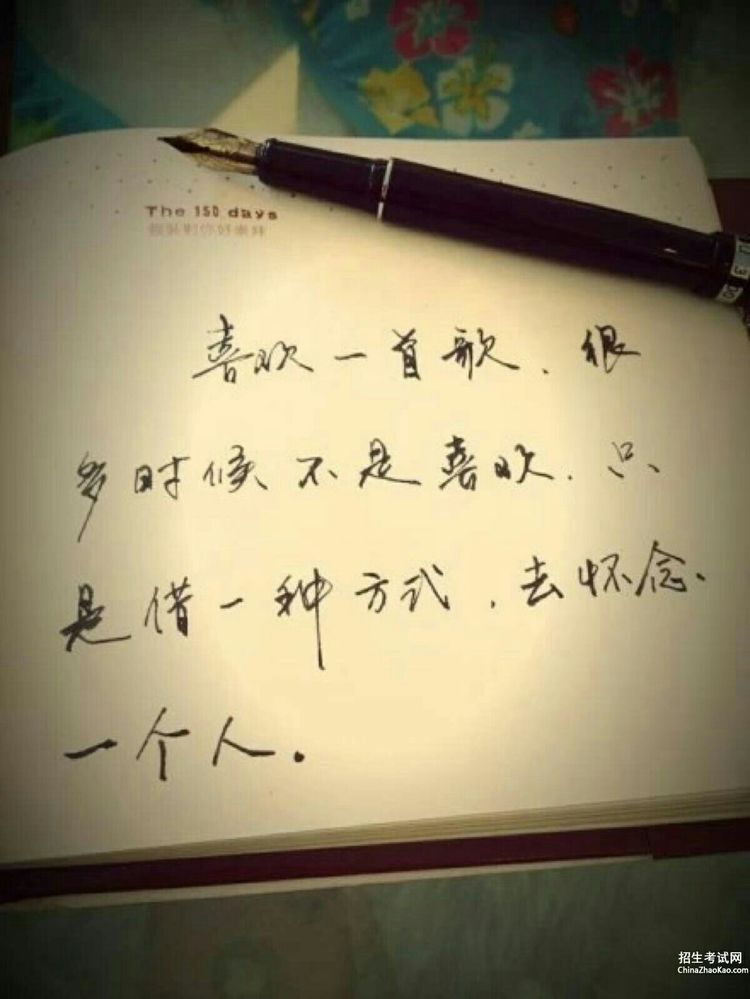 The 150 days
喜欢一首歌、很
多时候不是喜欢.只
是借一种方式,去怀念、
一个人.
招生考试网
ChinaZhaoKao.com